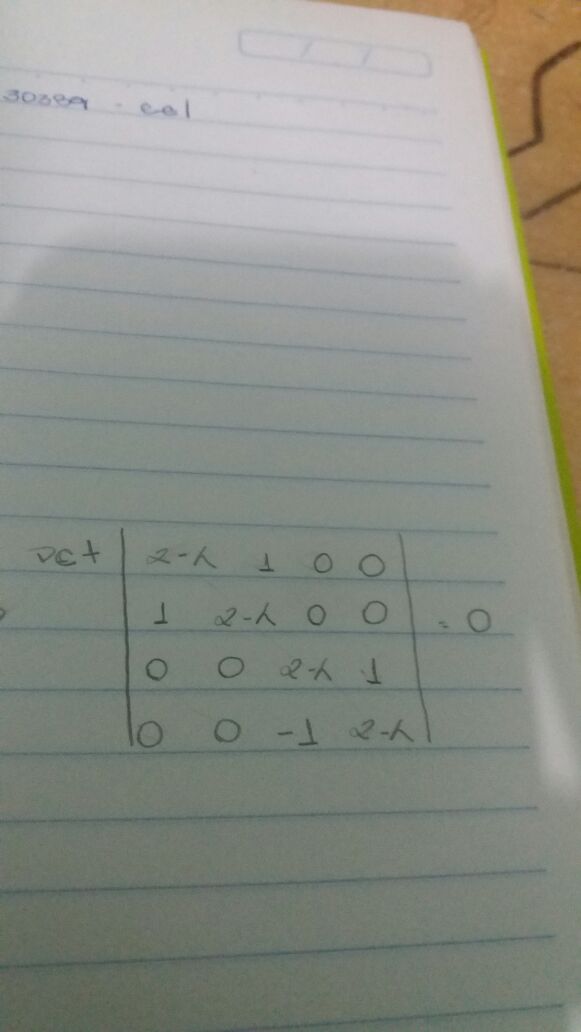 30389 - cel
Det | 2-λ 1 0 0 |
| 1 2-λ 0 0 | = 0
| 0 0 2-λ 1 |
| 0 0 -1 2-λ |